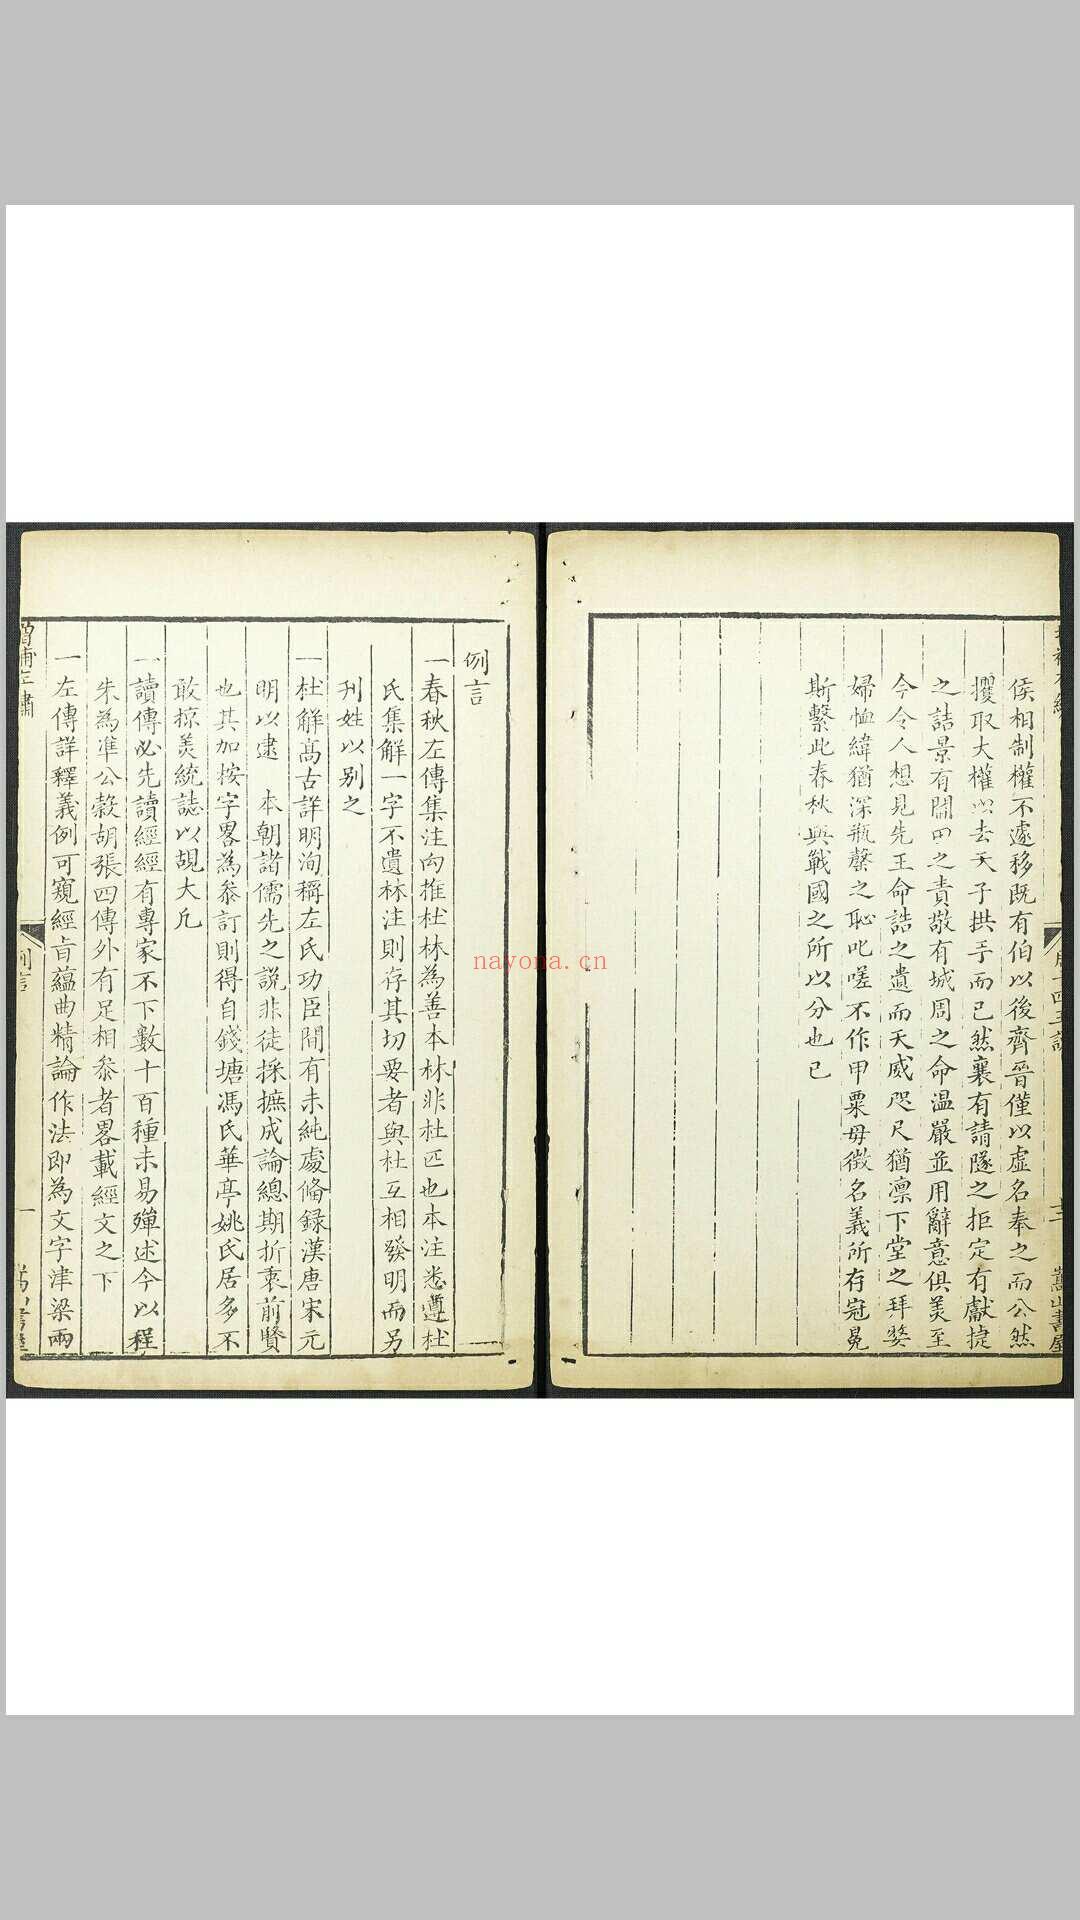 侯相制權不遽移既有伯以後齊晉僅以虛名奉之而公然
攫取大權以去天子拱手而已然襄有請隧之拒定有獻捷
之詰景有閻田之責敬有城周之命温嚴並用辭意俱美至
今令人想見先王命誥之遺而天威咫尺猶凛下堂之拜嫠
婦恤緯猶深瓶罄之恥叱嗟不作甲粟毋徵名義所存冠冕
斯繫此春秋與戰國之所以分也已
嵩山書屋
例言
一春秋左傳集注向推杜林為善本林非杜匹也本注悉遵杜
氏集解一字不遺林注則存其切要者與杜互相發明而另
刋姓以别之
一杜解高古詳明洵稱左氏功臣間有未純處偹録漢唐宋元
明以逮 本朝諸儒先之説非徒採摭成論總期折衷前賢
也其加按字畧為叅訂則得自錢塘馮氏華亭姚氏居多不
敢掠美統誌以覘大凢
一讀傳必先讀經經有專家不下數十百種未易殫述今以程
朱為準公穀胡張四傳外有足相叅者畧載經文之下
一左傳詳釋義例可窺經旨蘊曲精論作法即為文字津梁兩
例言
一
nayona.cn